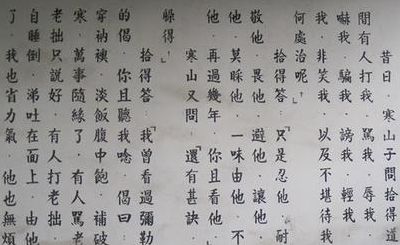 昔日·寒山子問拾得道
間有人打我·罵我·辱我·
嚇我·騙我·謗我·輕我·
我·非笑我·以及不堪待我
何處治呢」
拾得答·「只是忍他·耐
敬他·畏他·避他·讓他·
他·莫睬他·一味由他·不
他·再過幾年·你且看他
寒山又問·「還有甚訣
躲得」
拾得答·「我曾看過彌勒
的偈·你且聽我唸·偈曰
穿衲襖·淡飯腹中飽·補破
寒·萬事隨緣了·有人罵老
老拙只說好·有人打老拙
自睡倒·涕吐在面上·由他
了·我也省力氣·他也無煩